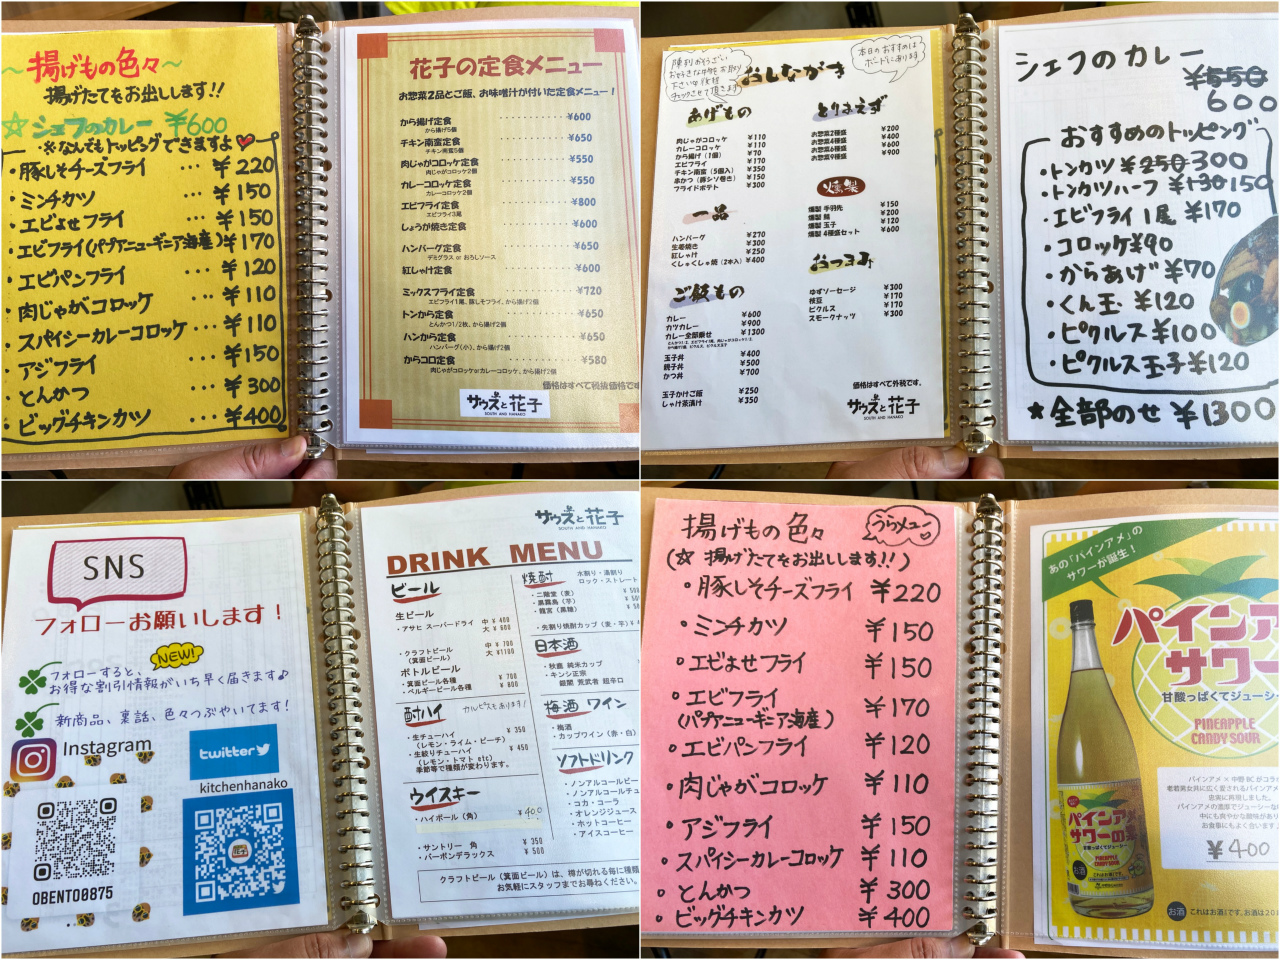 ～揚げもの色々～
揚げたてもお出しします!!
☆シェフのカレー ¥600
※なんでもトッピングできますよ♥
・豚しそチーズフライ ¥220
・ミンチカツ … ¥150
・エビよせフライ … ¥150
・エビフライ(パプアニューギニア海産) ¥170
・エビパンフライ … ¥120
・肉じゃがコロッケ … ¥110
・スパイシーカレーコロッケ … ¥110
・アジフライ … ¥150
・とんかつ … ¥300
・ビッグチキンカツ … ¥400
花子の定食メニュー
お惣菜2品とご飯、お味噌汁が付いた定食メニュー！
から揚げ定食 ¥600
から揚げ5個
チキン南蛮定食 ¥650
チキン南蛮5個
肉じゃがコロッケ定食 ¥550
肉じゃがコロッケ2個
カレーコロッケ定食 ¥550
カレーコロッケ2個
エビフライ定食 ¥800
エビフライ3尾
しょうが焼き定食 ¥600
ハンバーグ定食 ¥650
デミグラス or おろしソース
紅しゃけ定食 ¥600
ミックスフライ定食 ¥720
エビフライ1尾、豚しそフライ、から揚げ2個
トンから定食 ¥650
とんかつ1/2枚、から揚げ2個
ハンから定食 ¥650
ハンバーグ(小)、から揚げ2個
からコロ定食 ¥580
肉じゃがコロッケorカレーコロッケ、から揚げ2個
価格はすべて税抜価格です
サウスと花子
SOUTH AND HANAKO
おしながき
本日のおすすめは
ボードにあります
あげもの
肉じゃがコロッケ ¥110
カレーコロッケ ¥110
から揚げ（1個） ¥70
エビフライ ¥170
チキン南蛮（5個入） ¥350
串かつ（豚シソ巻き） ¥150
フライドポテト ¥300
一品
ハンバーグ ¥270
生姜焼き ¥300
紅しゃけ ¥250
くしゅくしゅ焼（2本入） ¥400
ご飯もの
カレー ¥600
カツカレー ¥900
カレー全部乗せ ¥1300
玉子丼 ¥400
親子丼 ¥500
かつ丼 ¥700
玉子かけご飯 ¥250
しゃけ茶漬け ¥350
とりあえず
お惣菜2種盛 ¥200
お惣菜4種盛 ¥400
お惣菜6種盛 ¥600
お惣菜9種盛 ¥900
燻製
燻製 手羽先 ¥150
燻製 鴨 ¥200
燻製 玉子 ¥120
燻製 4種盛セット ¥600
おつまみ
ゆずソーセージ ¥300
枝豆 ¥170
ピクルス ¥170
スモークナッツ ¥300
価格はすべて外税です。
サウスと花子
SOUTH AND HANAKO
シェフのカレー
¥550
600
おすすめのトッピング
・トンカツ ¥250 300
・トンカツハーフ ¥130 150
・エビフライ1尾 ¥170
・コロッケ ¥90
・からあげ ¥70
・くん玉 ¥120
・ピクルス ¥100
・ピクルス玉子 ¥120
★全部のせ ¥1300
SNS
フォローお願いします！
NEW!
フォローすると、
お得な割引情報がいち早く届きます♪
新商品、裏話、色々つぶやいてます!
Instagram
OBENTO8875
twitter
kitchenhanako
サウスと花子
SOUTH AND HANAKO
DRINK MENU
ビール
生ビール
・アサヒ スーパードライ 中 ¥400
大 ¥600
・クラフトビール 中 ¥700
(箕面ビール) 大 ¥1100
ボトルビール
・箕面ビール各種 ¥700
・ベルギービール各種 ¥800
酎ハイ カルピスもあります!
・生チューハイ ¥350
(レモン・ライム・ピーチ)
・生絞りチューハイ ¥450
(レモン・トマト etc)
季節等で種類が変わります。
ウイスキー
・ハイボール（角） ¥400
・サントリー 角 ¥350
・バーボンデラックス ¥500
焼酎 水割り・湯割り
ロック・ストレート
・二階堂（麦）
・黒霧島（芋）
・龍宮（黒糖）
・先割り焼酎カップ（麦・芋）
日本酒
・秋鹿 純米カップ
・キンシ正宗
銀閣 荒武者 超辛口
梅酒 ワイン
・梅酒
・カップワイン（赤・白）
ソフトドリンク
・ノンアルコールビー
・ノンアルコールチュ
・コカ・コーラ
・オレンジジュース
・ホットコーヒー
・アイスコーヒー
クラフトビール（箕面ビール）は、樽が切れる毎に種類
お気軽にスタッフまでお尋ねください。
揚げもの色々
うらメニュー
(☆ 揚げたてをお出しします!!)
・豚しそチーズフライ ¥220
・ミンチカツ ¥150
・エビよせフライ ¥150
・エビフライ ¥170
(パプアニューギニア海産)
・エビパンフライ ¥120
・肉じゃがコロッケ ¥110
・アジフライ ¥150
・スパイシーカレーコロッケ ¥110
・とんかつ ¥300
・ビッグチキンカツ ¥400
あの「パインアメ」の
サワーが誕生！
パインア
サワー
甘酸っぱくてジューシー
PINEAPPLE
CANDY SOUR
パインアメ
サワーの
パインアメ × 中野BCがコラ
老若男女共に広く愛されるパインアメ
忠実に再現しました。
パインアメの濃厚でジューシーな
中にも爽やかな酸味があり
お食事にもよく合います
¥400
お酒 これはお酒です。お酒は20